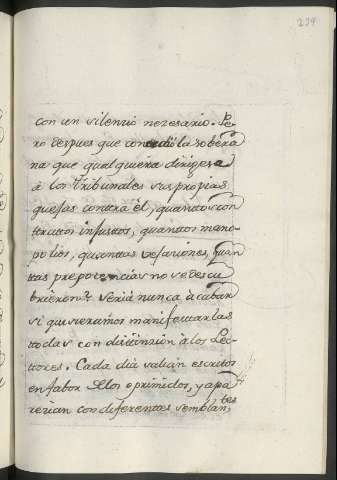 239
con un silencio necesario. Pe-
ro despues que concedió la sobera
na que qualquiera dirigesa
à los Tribunales sus propias
quejas contra èl, quantos con
tratos injustos, quantos mono
polios, quantas vejaciones, quan
tas prepotencias no se descu
brieron? Seria nunca àcabar
si quisieramos manifestarlas
todas con distinsion à los Lec-
tores. Cada dia salian escritos
en fabor de los oprimidos, y apa
recian con diferentes semblan
tes